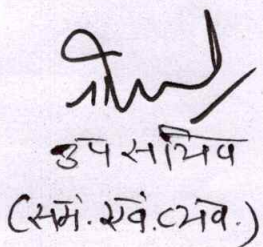 उप सचिव
(समं. एवं. व्यव.)